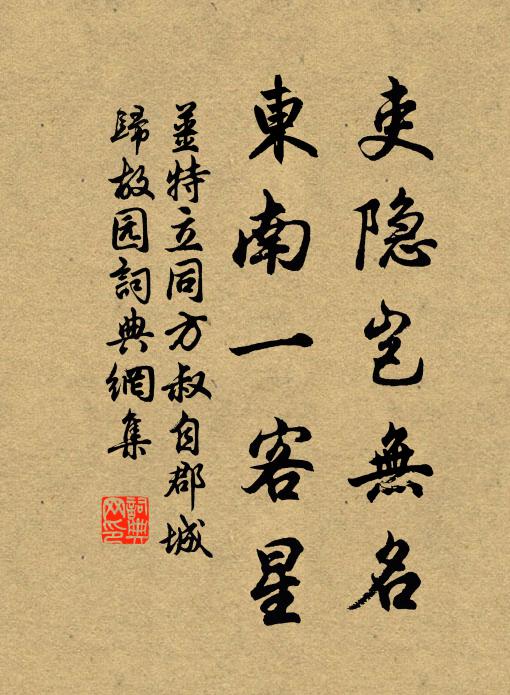 吏隐岂無名
東南一客星
姜特立同方叔自郡城
歸故园詞典網集
詞典网印